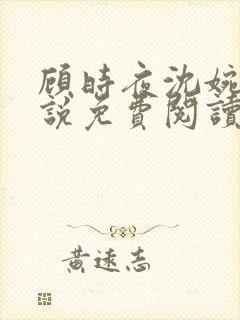 顾時夜沈婉
說免費閱讀
黃遠志